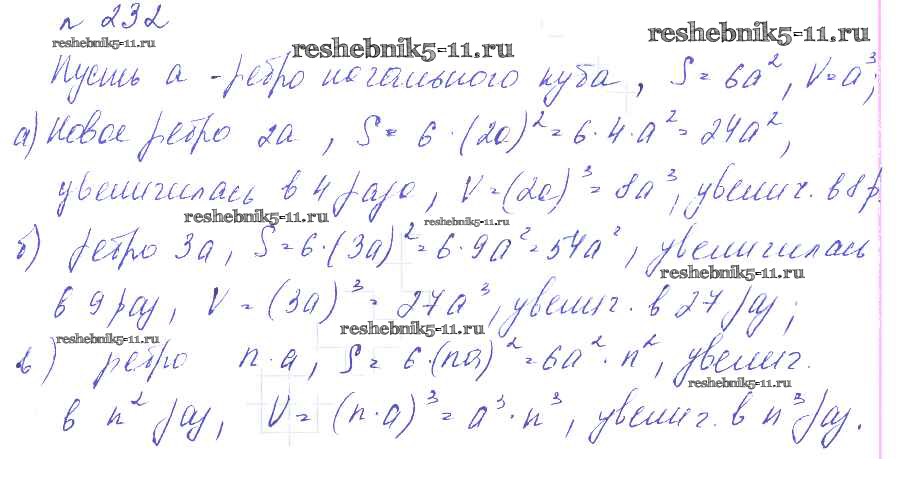 № 232
reshebnik5-11.ru
reshebnik5-11.ru
reshebnik5-11.ru
Пусть а - ребро начального куба, S = 6a², V = a³;
а) Новое ребро 2а, S = 6 · (2a)² = 6 · 4 · a² = 24a²,
увеличилась в 4 раза, V = (2a)³ = 8a³, увелич. в 8 р.
reshebnik5-11.ru
reshebnik5-11.ru
б) ребро 3а, S = 6 · (3a)² = 6 · 9a² = 54a², увеличилась
reshebnik5-11.ru
в 9 раз, V = (3a)³ = 27a³, увелич. в 27 раз;
reshebnik5-11.ru
reshebnik5-11.ru
в) ребро n · a, S = 6 · (na)² = 6a² · n², увелич.
reshebnik5-11.ru
в n² раз, V = (n · a)³ = a³ · n³, увелич. в n³ раз.